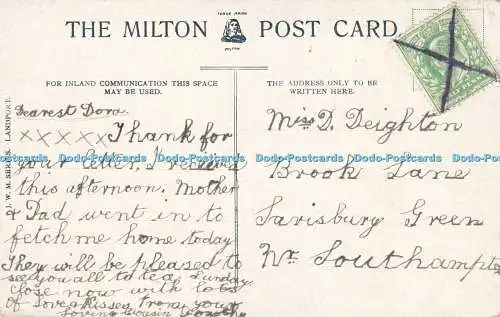 THE MILTON POST CARD.
TRADE MARK
MILTON
FOR INLAND COMMUNICATION THIS SPACE
MAY BE USED.
THE ADDRESS ONLY TO BE
WRITTEN HERE.
J. W. M. SERIES. LANDPORT.
Dearest Dora.
x x x x x Thank for
your letter, I received
this afternoon. Mother
& Dad went in to
fetch me home today
They will be pleased to
see you all to tea Sunday
close now with lots
of Love & Kisses from your
loving cousin Dorothy
Miss D. Deighton
Brook Lane
Sarisbury Green
Nr. Southampton
Dodo-Postcards Dodo-Postcards Dodo-Postcards Dodo-Postcards Dodo-Postcards